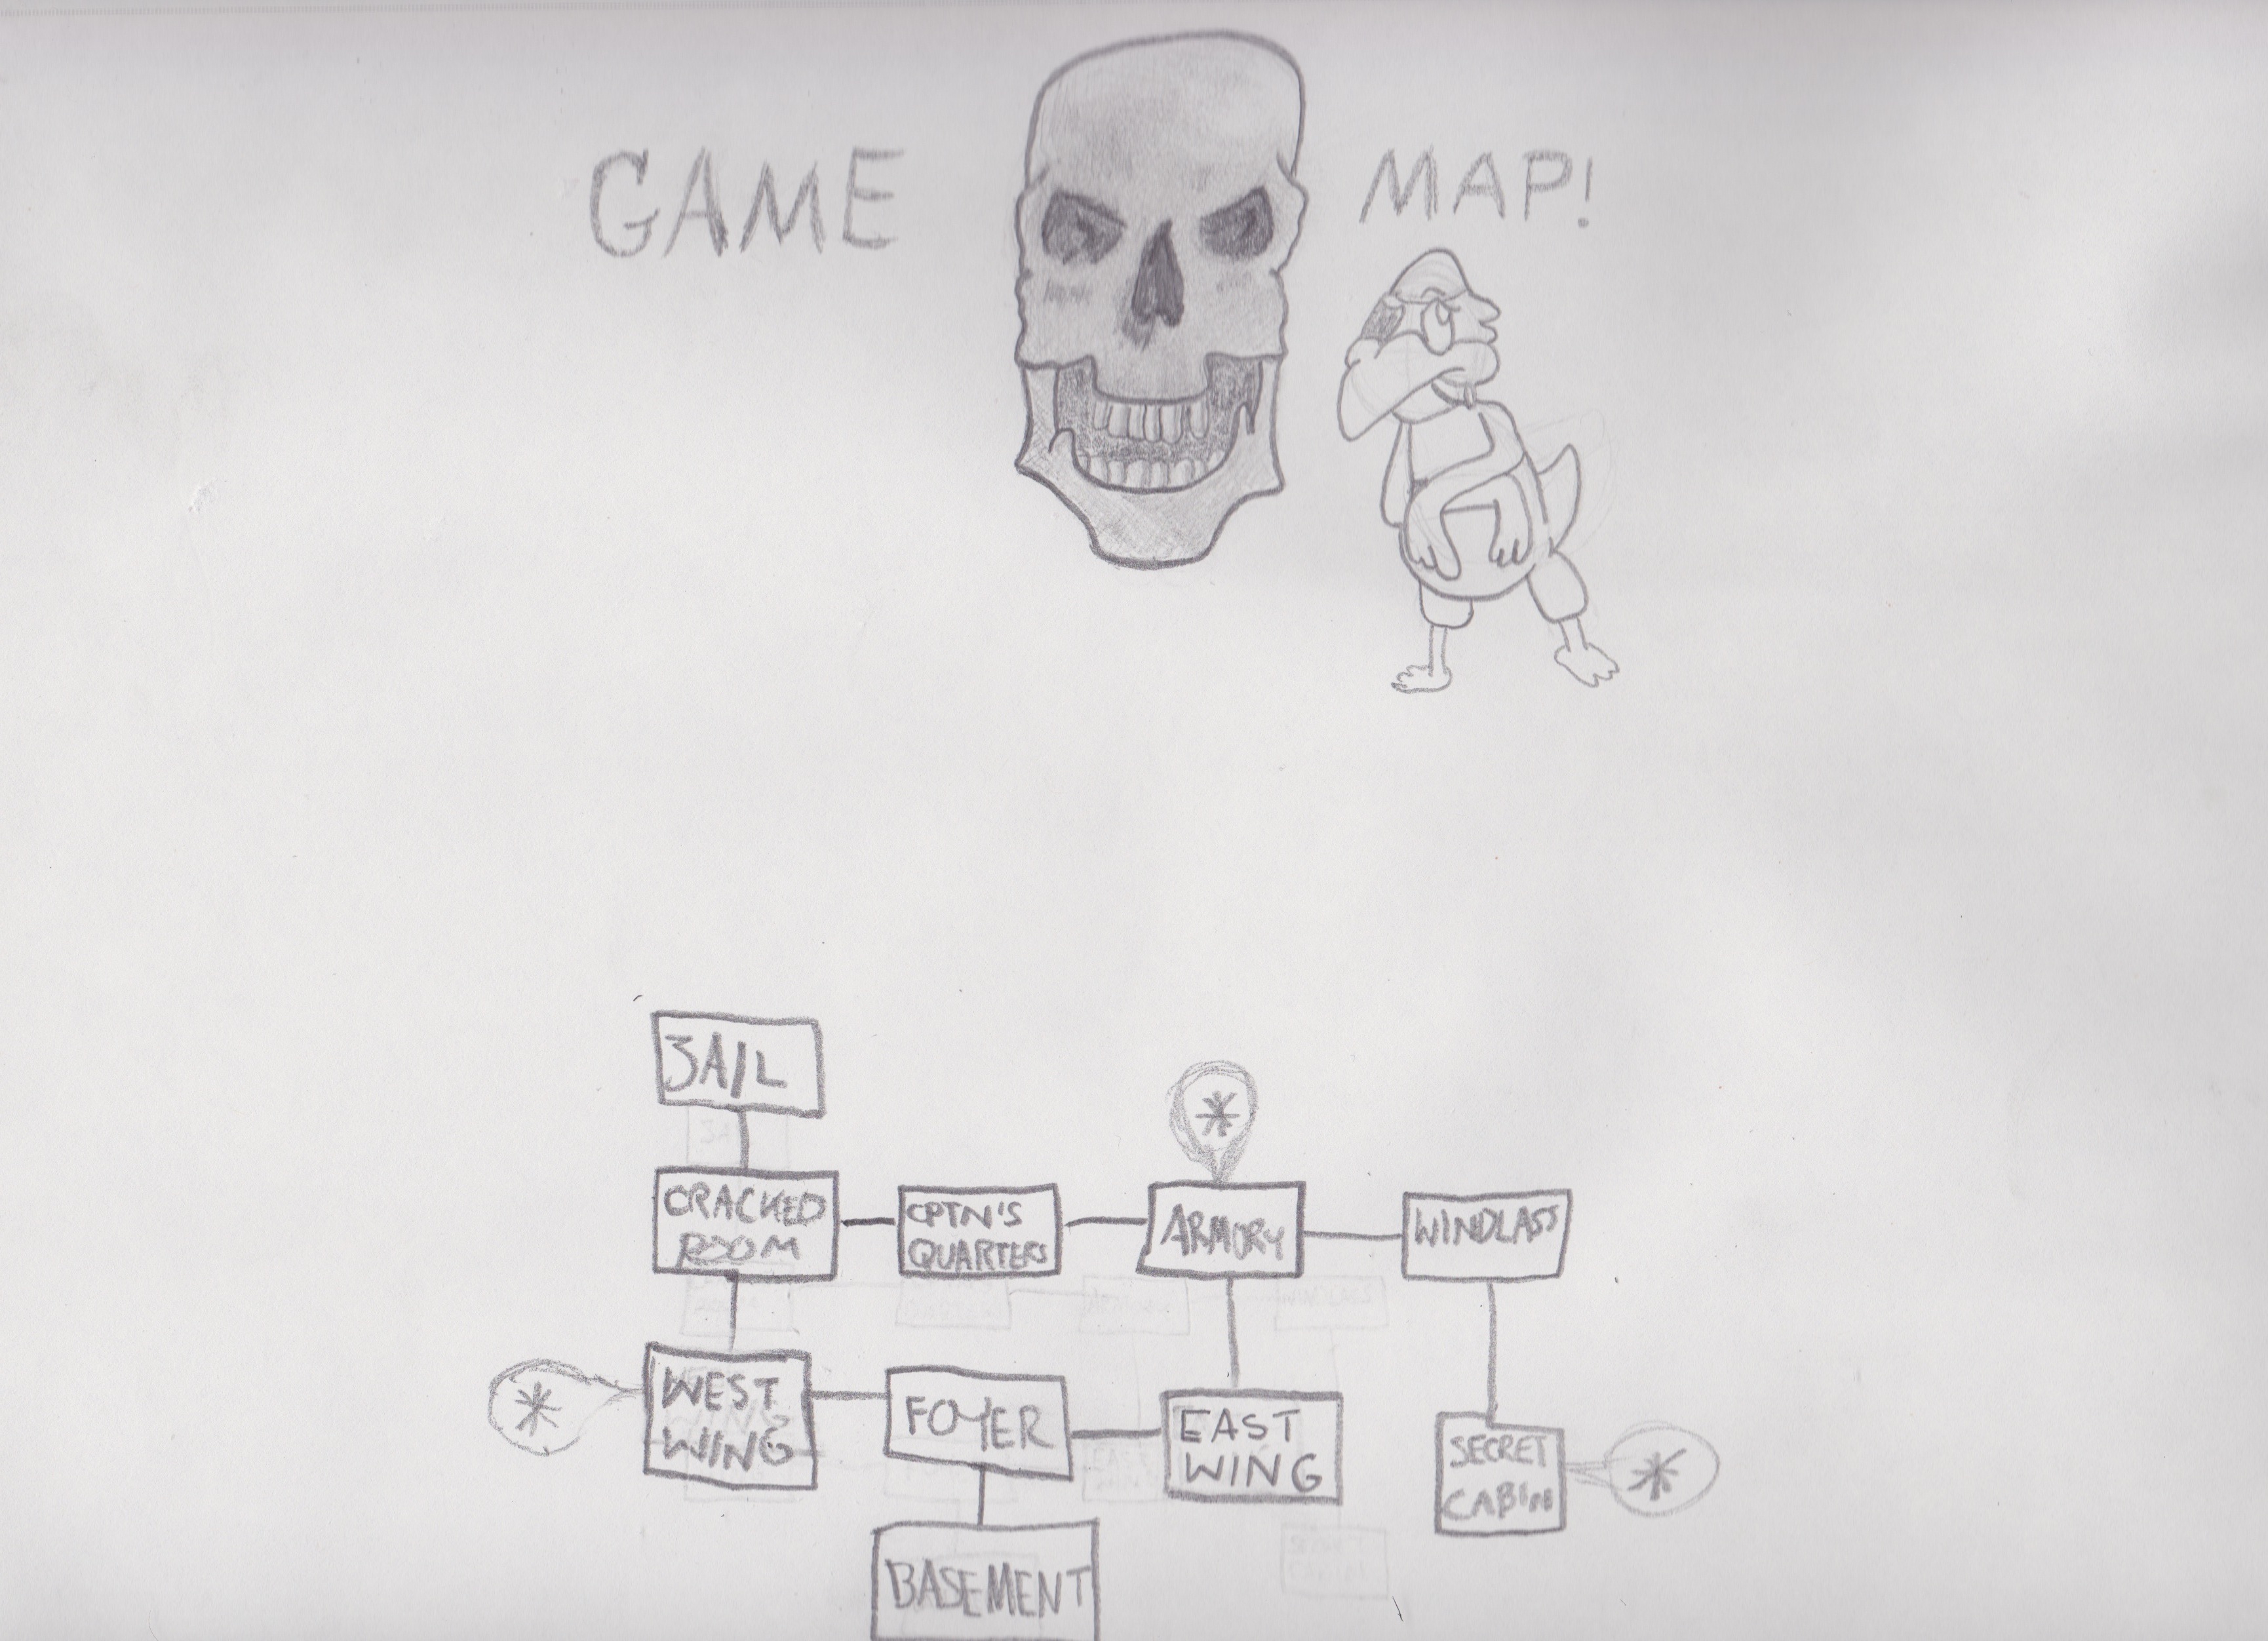 GAME MAP!
JAIL
CRACKED
ROOM
CPTN'S
QUARTERS
ARMORY
WINDLASS
WEST
WING
FOYER
EAST
WING
SECRET
CABIN
BASEMENT